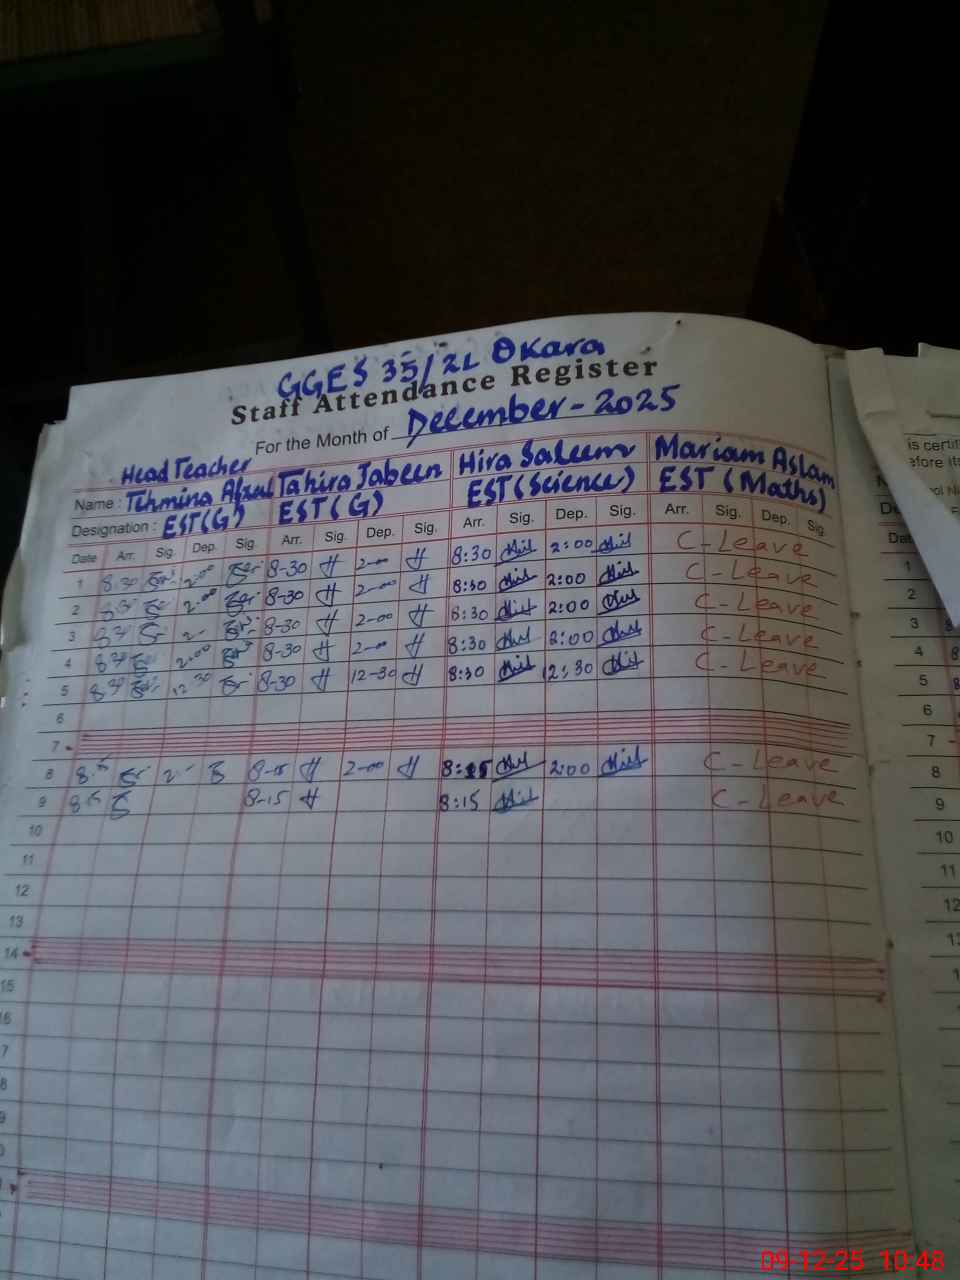 GGES 35/2L Okara
Staff Attendance Register
For the Month of December-2025
Head Teacher
Name : Tehmina Afzal Tahira Jabeen Hira Saleem Mariam Aslam
Designation : EST(G) EST(G) EST(Science) EST(Maths)
Date Arr. Sig. Dep. Sig. Arr. Sig. Dep. Sig. Arr. Sig. Dep. Sig. Arr. Sig. Dep. Sig.
1 8-30 2-00 8-30 2-00 8:30 2:00 C-Leave
2 8-30 2-00 8-30 2-00 8:30 2:00 C-Leave
3 8-30 2- 8-30 2-00 8:30 2:00 C-Leave
4 8-30 2-00 8-30 2-00 8:30 2:00 C-Leave
5 8-30 12-30 8-30 12-30 8:30 12:30 C-Leave
6
7
8 8-15 2- 8-15 2-00 8:15 2:00 C-Leave
9 8-15 8-15 8:15 C-Leave
10
11
12
13
14
15
16
is certi
efore it
Dat
1
2
3
4
5
6
7
8
9
10
11
12
09-12-25 10:48